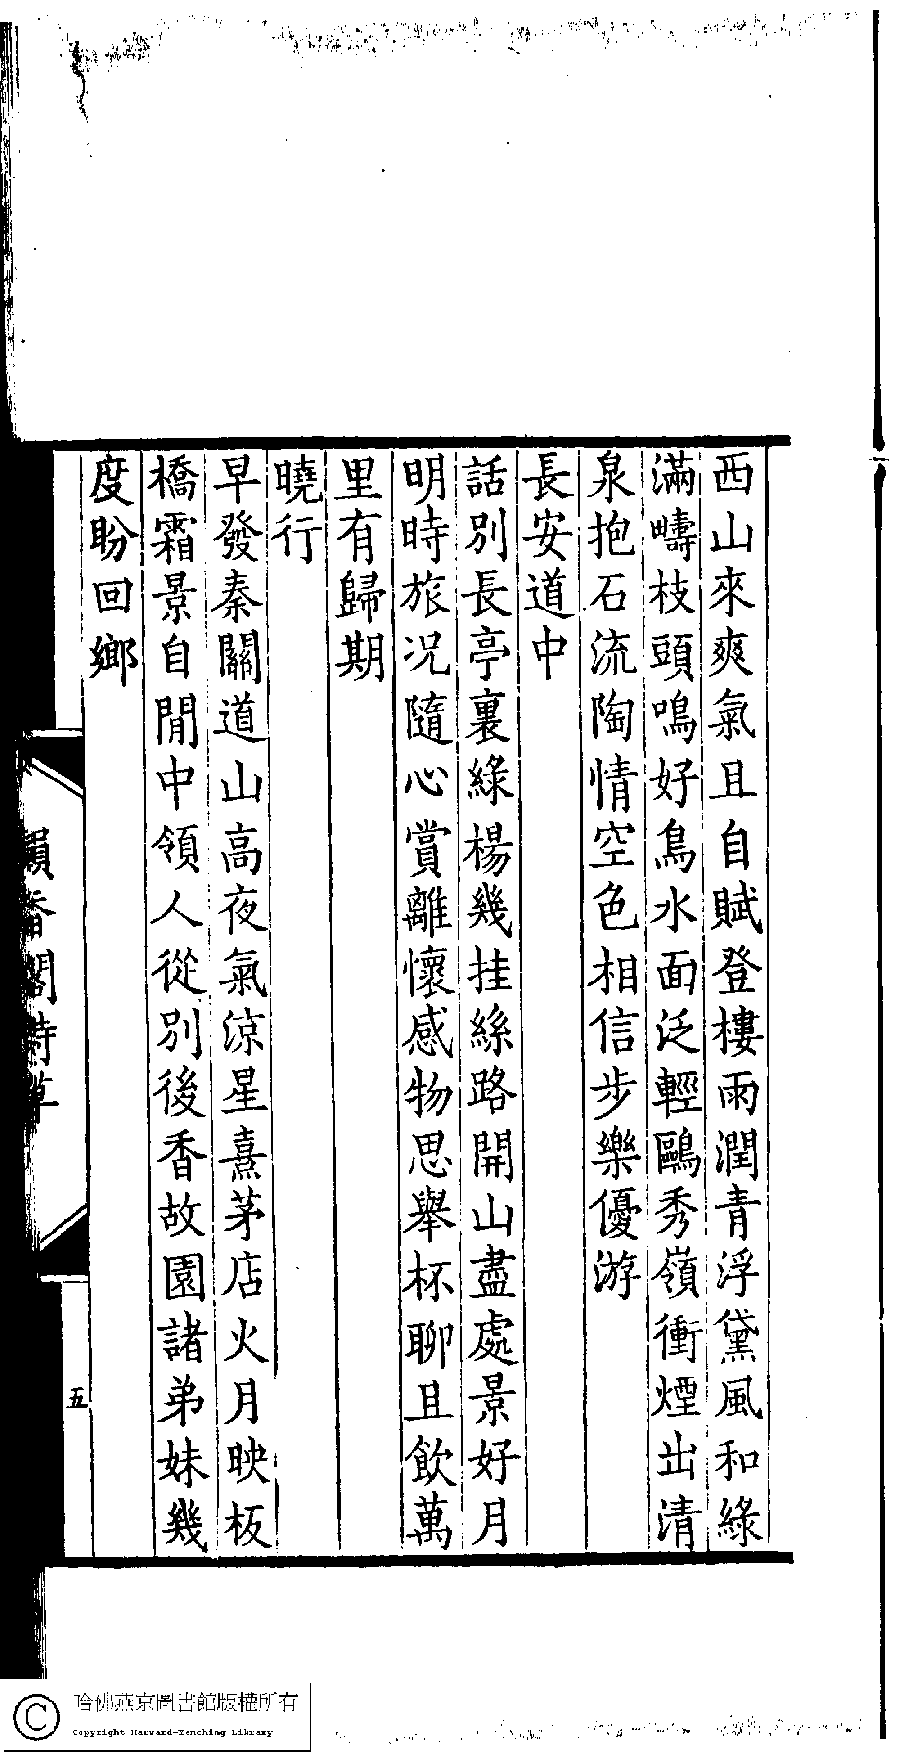 西山來爽氣且自賦登樓雨潤青浮黛風和綠
滿疇枝頭鳴好鳥水面泛輕鷗秀嶺衝煙出清
泉抱石流陶情空色相信步樂優游
長安道中
話別長亭裏綠楊幾挂絲路開山盡處景好月
明時旅况隨心賞離懷感物思舉杯聊且飲萬
里有歸期
曉行
早發秦關道山高夜氣涼星熹茅店火月映板
橋霜景自閒中領人從別後香故園諸弟妹幾
度盼回鄉
香閣詩草
五
哈佛燕京圖書館版權所有
Copyright Harvard-Yenching Library